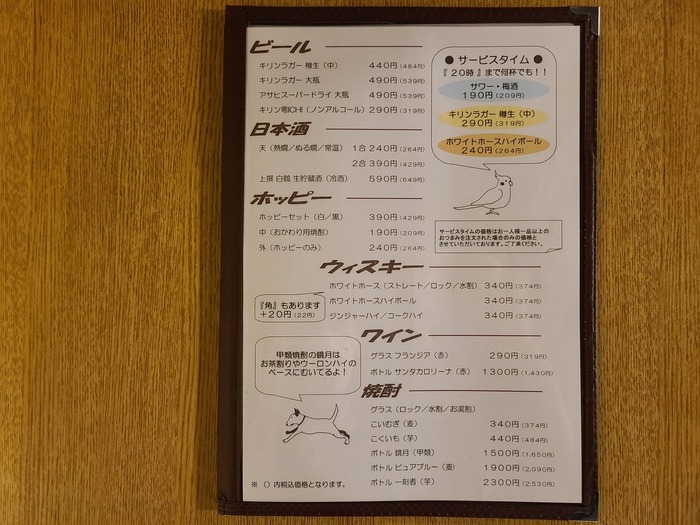 ビール
キリンラガー 樽生（中） 440円（484円）
キリンラガー 大瓶 490円（539円）
アサヒスーパードライ 大瓶 490円（539円）
キリン零ICHI（ノンアルコール） 290円（319円）
日本酒
天（熱燗／ぬる燗／常温） 1合 240円（264円）
2合 390円（429円）
上撰 白鶴 生貯蔵酒（冷酒） 590円（649円）
ホッピー
ホッピーセット（白／黒） 390円（429円）
中（おかわり用焼酎） 190円（209円）
外（ホッピーのみ） 240円（264円）
● サービスタイム ●
『 20時 』まで何杯でも！！
サワー・梅酒
190円（209円）
キリンラガー 樽生（中）
290円（319円）
ホワイトホースハイボール
240円（264円）
サービスタイムの価格はお一人様一品以上の
おつまみを注文された場合のみの価格と
させていただいております。ご了承ください。
ウィスキー
ホワイトホース（ストレート／ロック／水割） 340円（374円）
ホワイトホースハイボール 340円（374円）
ジンジャーハイ／コークハイ 340円（374円）
『角』もあります
＋20円（22円）
ワイン
グラス フランジア（赤） 290円（319円）
ボトル サンタカロリーナ（赤） 1300円（1,430円）
甲類焼酎の鏡月は
お茶割りやウーロンハイの
ベースにむいてるよ！
焼酎
グラス（ロック／水割／お湯割）
こいむぎ（麦） 340円（374円）
こくいも（芋） 440円（484円）
ボトル 鏡月（甲類） 1500円（1,650円）
ボトル ピュアブルー（麦） 1900円（2,090円）
ボトル 一刻者（芋） 2300円（2,530円）
※（）内税込価格となります。